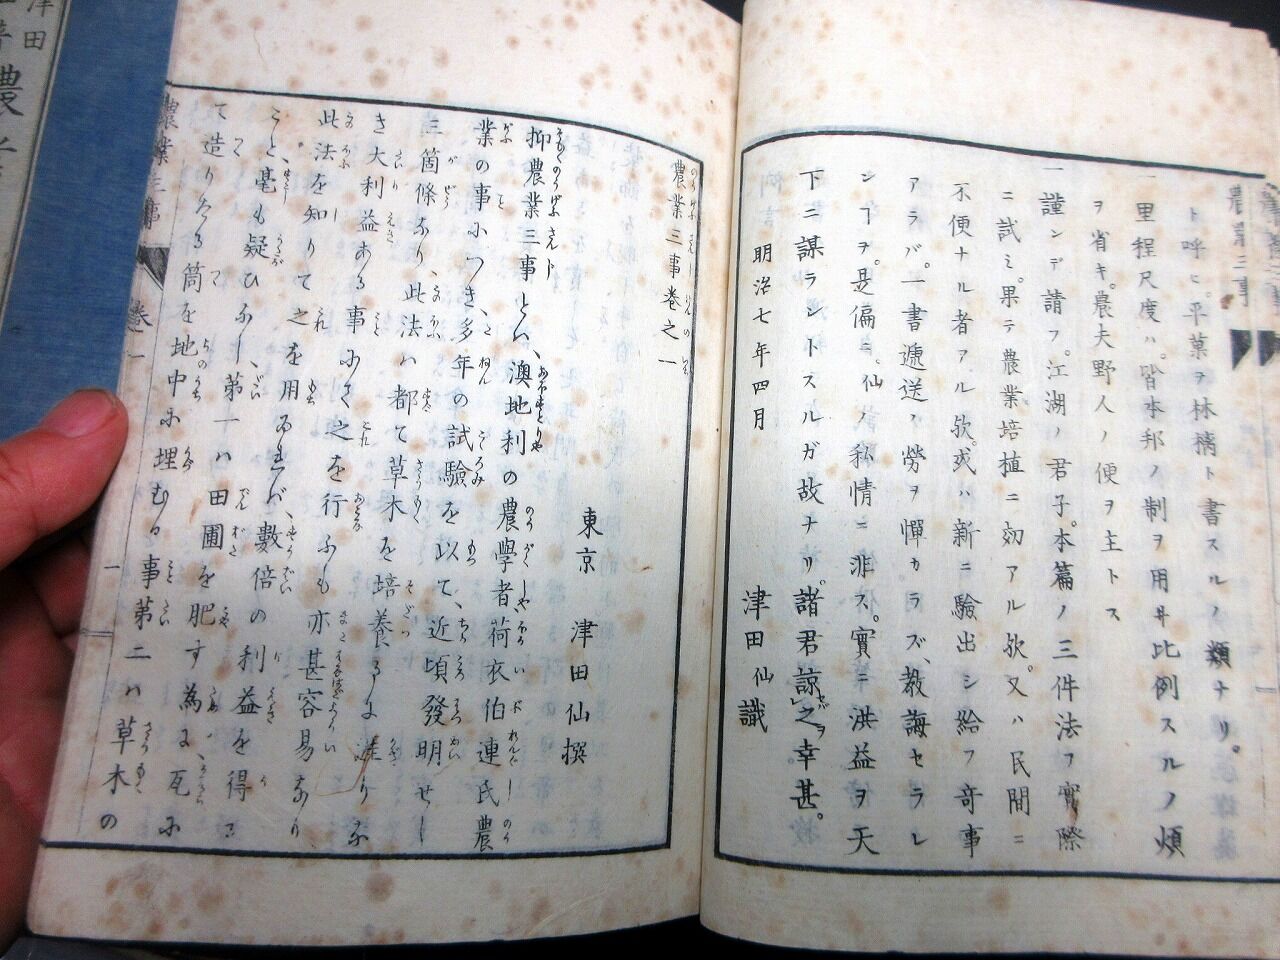 ト呼ヒ。平菓ヲ林檎ト書スルノ類ナリ。
一里程尺度ハ。皆本邦ノ制ヲ用井比例スルノ煩
ヲ省キ。農夫野人ノ便ヲ主トス
一謹ンデ請フ。江湖ノ君子。本篇ノ三件法ヲ實際
ニ試ミ。果テ農業培植ニ効アル欤。又ハ民間ニ
不便ナル者アル欤。或ハ新ニ驗出シ給フ竒事
アラバ。一書遞送ノ勞ヲ憚カラズ、教誨セラレ
ンヿヲ。是偏ニ。仙ノ私情ニ非ス。實ニ洪益ヲ天
下ニ謀ラントスルガ故ナリ。諸君諒之ヲ幸甚。
明治七年四月 津田仙識
農業三事
農業三事卷之一
東京 津田仙撰
抑農業三事とハ、澳地利の農學者荷衣伯連氏農
業の事につき、多年の試驗を以て、近頃發明せし
三箇條なり、此法ハ都て草木を培養するに、
き大利益ある事にて之を行ふも亦甚容易なり
此法を知りて之を用ゐれバ、數倍の利益を得
こと、毫も疑ひなし、第一ハ田圃を肥す為に、瓦に
て造りたる筒を地中に埋むる事第二ハ草木の
農業三事 卷一 一
津田
農